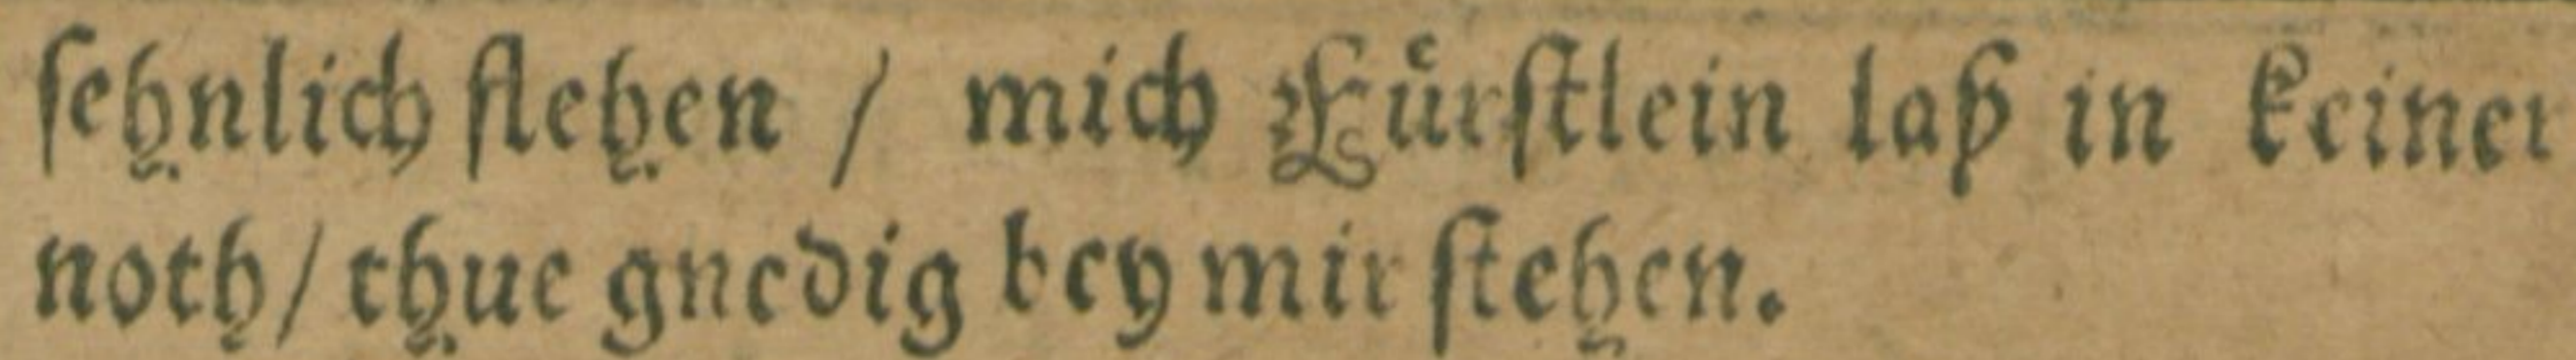 ſehnlich flehen / mich Fuͤrſtlein laß in keiner
noth / thue gnedig bey mir ſtehen.